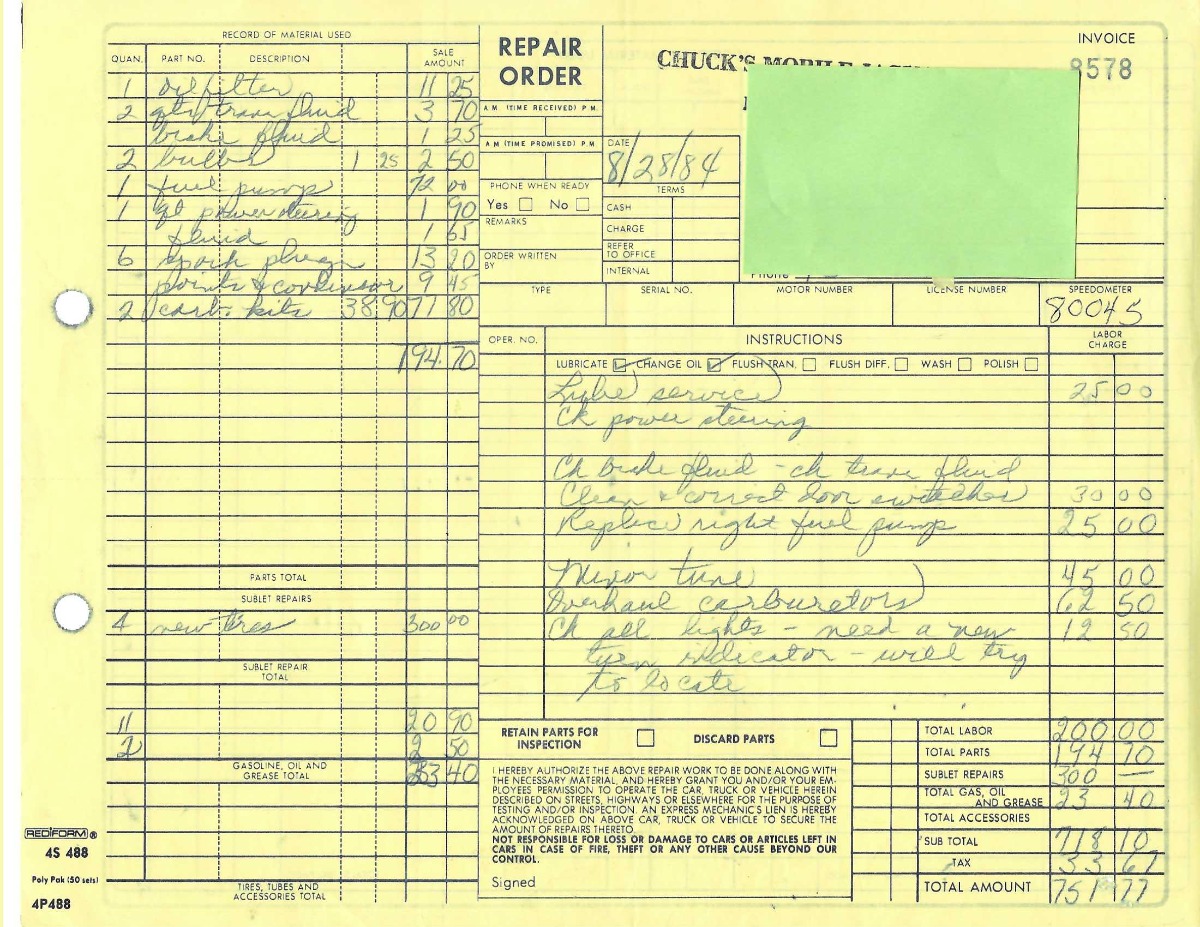 RECORD OF MATERIAL USED
QUAN. PART NO. DESCRIPTION SALE AMOUNT
1 oil filter 11 25
2 qts trans fluid 3 70
brake fluid 1 25
2 bulbs 1 25 2 50
1 fuel pump 72 00
1 qt power steering 1 90
fluid 1 65
6 spark plugs 13 20
points & condensor 9 45
2 carb. kits 38.90 71 80
194.70
PARTS TOTAL
SUBLET REPAIRS
4 new tires 300 00
SUBLET REPAIR TOTAL
11 20 90
2 2 50
GASOLINE, OIL AND GREASE TOTAL 23 40
TIRES, TUBES AND ACCESSORIES TOTAL
REDIFORM ®
4S 488
Poly Pak (50 sets)
4P488
REPAIR ORDER
CHUCK'S MOBILE
INVOICE
8578
A M (TIME RECEIVED) P M
A M (TIME PROMISED) P M
DATE
8/28/84
PHONE WHEN READY
Yes No
TERMS
CASH
CHARGE
REFER TO OFFICE
INTERNAL
REMARKS
ORDER WRITTEN BY
Phone
TYPE SERIAL NO. MOTOR NUMBER LICENSE NUMBER SPEEDOMETER
80045
OPER. NO. INSTRUCTIONS LABOR CHARGE
LUBRICATE CHANGE OIL FLUSH TRAN. FLUSH DIFF. WASH POLISH
Lube service 25 00
Ck power steering
Ck brake fluid - ck trans fluid
Clean & correct door switches 30 00
Replace right fuel pump 25 00
Minor tune 45 00
Overhaul carburetors 62 50
Ck all lights - need a new 12 50
turn indicator - will try
to locate
RETAIN PARTS FOR INSPECTION DISCARD PARTS
I HEREBY AUTHORIZE THE ABOVE REPAIR WORK TO BE DONE ALONG WITH
THE NECESSARY MATERIAL, AND HEREBY GRANT YOU AND/OR YOUR EM-
PLOYEES PERMISSION TO OPERATE THE CAR, TRUCK OR VEHICLE HEREIN
DESCRIBED ON STREETS, HIGHWAYS OR ELSEWHERE FOR THE PURPOSE OF
TESTING AND/OR INSPECTION. AN EXPRESS MECHANIC'S LIEN IS HEREBY
ACKNOWLEDGED ON ABOVE CAR, TRUCK OR VEHICLE TO SECURE THE
AMOUNT OF REPAIRS THERETO.
NOT RESPONSIBLE FOR LOSS OR DAMAGE TO CARS OR ARTICLES LEFT IN
CARS IN CASE OF FIRE, THEFT OR ANY OTHER CAUSE BEYOND OUR
CONTROL.
Signed
TOTAL LABOR 200 00
TOTAL PARTS 194 70
SUBLET REPAIRS 300 —
TOTAL GAS, OIL AND GREASE 23 40
TOTAL ACCESSORIES
SUB TOTAL 718 10
TAX 33 67
TOTAL AMOUNT 751 77